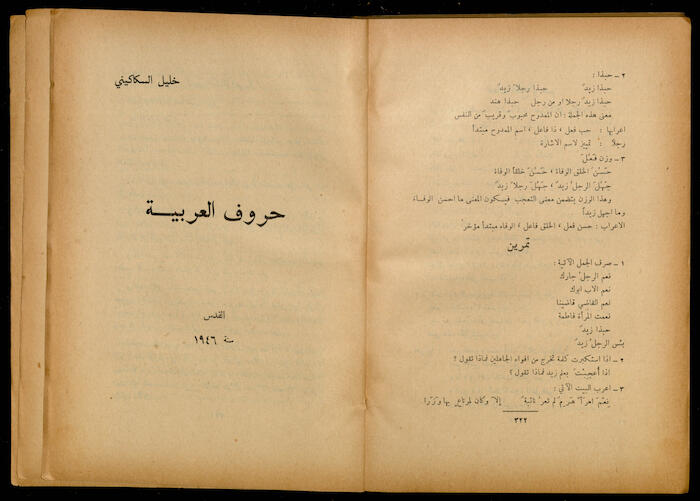 ٢ – حبذا :
حبذا زيدٌ حبذا رجلاً زيدٌ
حبذا زيدٌ رجلا او من رجل حبذا هند
معنى هذه الجملة : ان الممدوح محبوبٌ وقريبٌ من النفس
اعرابها : حب فعل ، ذا فاعل ، اسم الممدوح مبتدأ
رجلاً : تمييز لاسم الاشارة
٣ – وزن فَعُلَ
حَسُنَ الخلق الوفاء ، حَسُنَ خلقاً الوفاء
جَهُلَ الرجلُ زيدٌ ، جَهُلَ رجلاً زيدٌ
وهذا الوزن يتضمن معنى التعجب فيكون المعنى ما احسن الوفاء
وما اجهل زيداً
الاعراب : حسن فعل ، الخلق فاعل ، الوفاء مبتدأ مؤخر
تمرين
١ – صرف الجمل الآتية :
نعم الرجلُ جارك
نعم الاب ابوك
نعم القاضي قاضينا
نعمت المرأة فاطمة
حبذا زيدٌ
بئس الرجلُ زيدٌ
٢ – اذا استكبرت كلمة تخرج من افواه الجاهلين فماذا تقول ؟
اذا أُعجبتَ بعلم زيد فماذا تقول ؟
٣ – اعرب البيت الآتي :
نِعمَ امرَأً هَرِمٌ لم تعرُ نائبةٌ إلاّ وكان لمرتاعٍ بها وَزَرا
٣٢٢
خليل السكاكيني
حروف العربية
القدس
سنة ١٩٤٦